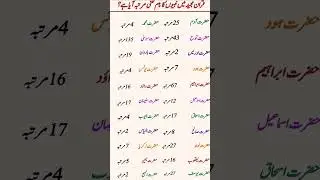 قرآن مجید میں نبیوں کا نام کتنی مرتبہ آیا ہے؟
حضرت آدم 25 مرتبہ حضرت محمد 4 مرتبہ
حضرت نوح 43 مرتبہ حضرت موسیٰ 135 مرتبہ
حضرت ادریس 2 مرتبہ حضرت ہارون 19 مرتبہ
حضرت ہود 7 مرتبہ حضرت یونس 4 مرتبہ
حضرت ابراہیم 67 مرتبہ حضرت داؤد 16 مرتبہ
حضرت اسماعیل 12 مرتبہ حضرت سلیمان 17 مرتبہ
حضرت اسحاق حضرت ایوب 4 مرتبہ
حضرت صالح 8 مرتبہ حضرت الیاس 2 مرتبہ
حضرت لوط 27 مرتبہ حضرت زکریا 7 مرتبہ
حضرت یعقوب 16 مرتبہ 5 مرتبہ
حضرت یوسف 27 مرتبہ 2 مرتبہ
حضرت ہود
حضرت ابراہیم
حضرت اسماعیل
حضرت اسحاق
4 مرتبہ
17 مرتبہ
4 مرتبہ